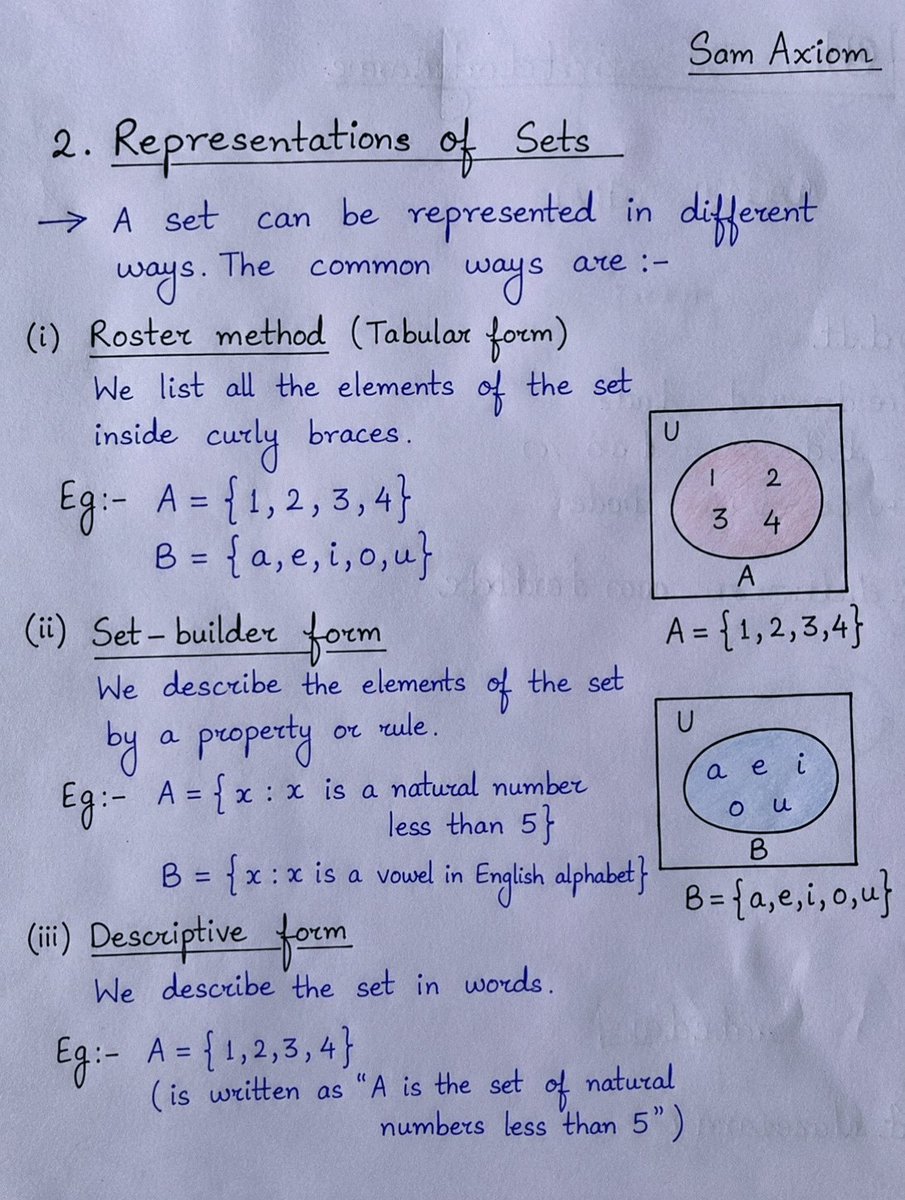 Sam Axiom
2. Representations of Sets
→ A set can be represented in different
ways. The common ways are :-
(i) Roster method (Tabular form)
We list all the elements of the set
inside curly braces.
Eg:- A = {1, 2, 3, 4}
B = {a, e, i, o, u}
U
1 2
3 4
A
A = {1, 2, 3, 4}
(ii) Set-builder form
We describe the elements of the set
by a property or rule.
Eg:- A = {x : x is a natural number
less than 5}
B = {x : x is a vowel in English alphabet}
U
a e i
o u
B
B = {a, e, i, o, u}
(iii) Descriptive form
We describe the set in words.
Eg:- A = {1, 2, 3, 4}
(is written as "A is the set of natural
numbers less than 5")